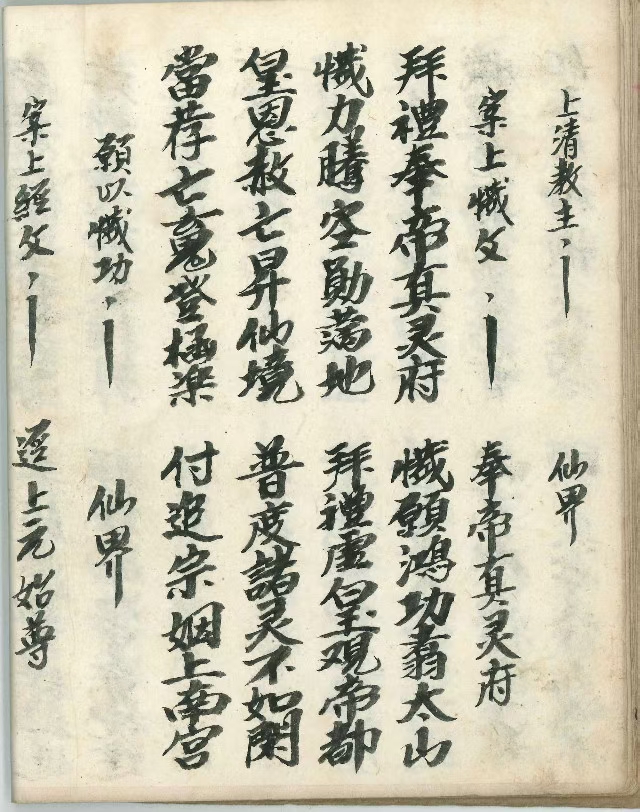 上清教主、丨 仙界
案上懺文、丨 奉帝真灵府
拜禮奉帝真灵府 懺願鴻功翥太山
懺力騰空勛满地 拜禮虛皇观帝都
皇恩赦亡昇仙境 普度諸灵不如閑
當荐亡魂登極楽 付追宗姻上南宮
願以懺功、丨 仙界
案上經文、丨 上元始尊